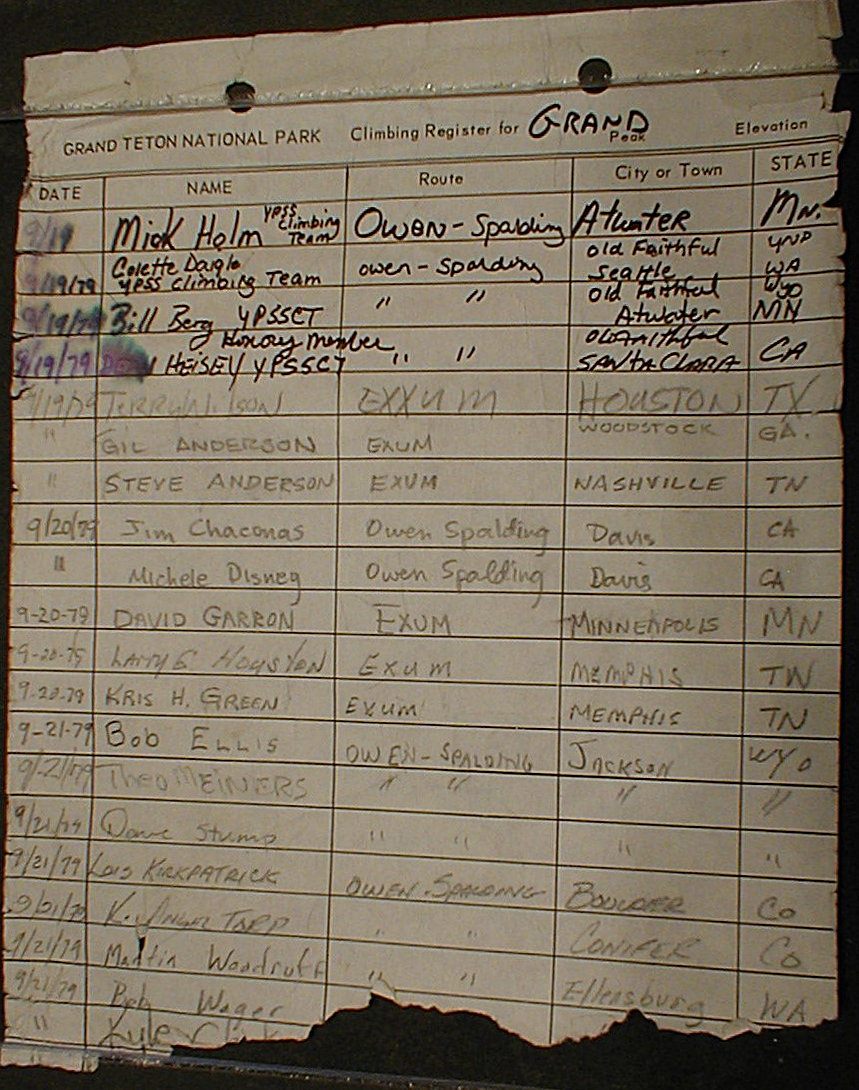 GRAND TETON NATIONAL PARK Climbing Register for GRAND Peak Elevation
DATE NAME Route City or Town STATE
9/19 Mick Holm YPSS Climbing Team Owen-Spalding Atwater Mn.
9/19/79 Colette Daigle YPSS Climbing Team Owen-Spalding Old Faithful Seattle YNP WA
9/19/79 Bill Berg YPSSCT " " Old Faithful Atwater Wyo MN
9/19/79 HEISEY YPSSCT Honorary Member " " Old Faithful SANTA CLARA CA
9/19/79 TERRY EXXUM HOUSTON TX
" GIL ANDERSON EXUM WOODSTOCK GA.
" STEVE ANDERSON EXUM NASHVILLE TN
9/20/79 Jim Chaconas Owen Spalding Davis CA
" Michele Disney Owen Spalding Davis CA
9-20-79 DAVID GARRON EXUM MINNEAPOLIS MN
9-20-79 LARRY G HOUSTON EXUM MEMPHIS TN
9-20-79 KRIS H. GREEN EXUM MEMPHIS TN
9-21-79 Bob ELLIS OWEN-SPALDING JACKSON WYO
9/21/79 Theo MEINERS " " " "
9/21/79 Dave Stump " " " "
9/21/79 Lois KIRKPATRICK OWEN-SPALDING BOULDER CO
9/21/79 K. TARP " " CONIFER CO
9/21/79 Martin Woodruff " " Ellensburg WA
9/21/79 Bob Wager
" Kyler
"